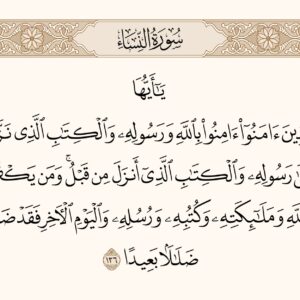 سُورَةُ النِّسَاءِ
يَٰٓأَيُّهَا
ءَامَنُوٓا۟ ءَامِنُوا۟ بِٱللَّهِ وَرَسُولِهِۦ وَٱلْكِتَٰبِ ٱلَّذِى
رَسُولِهِۦ وَٱلْكِتَٰبِ ٱلَّذِىٓ أَنزَلَ مِن قَبْلُ ۚ وَمَن
وَمَلَٰٓئِكَتِهِۦ وَكُتُبِهِۦ وَرُسُلِهِۦ وَٱلْيَوْمِ ٱلْءَاخِرِ فَقَدْ
ضَلَٰلًۢا بَعِيدًا ١٣٦